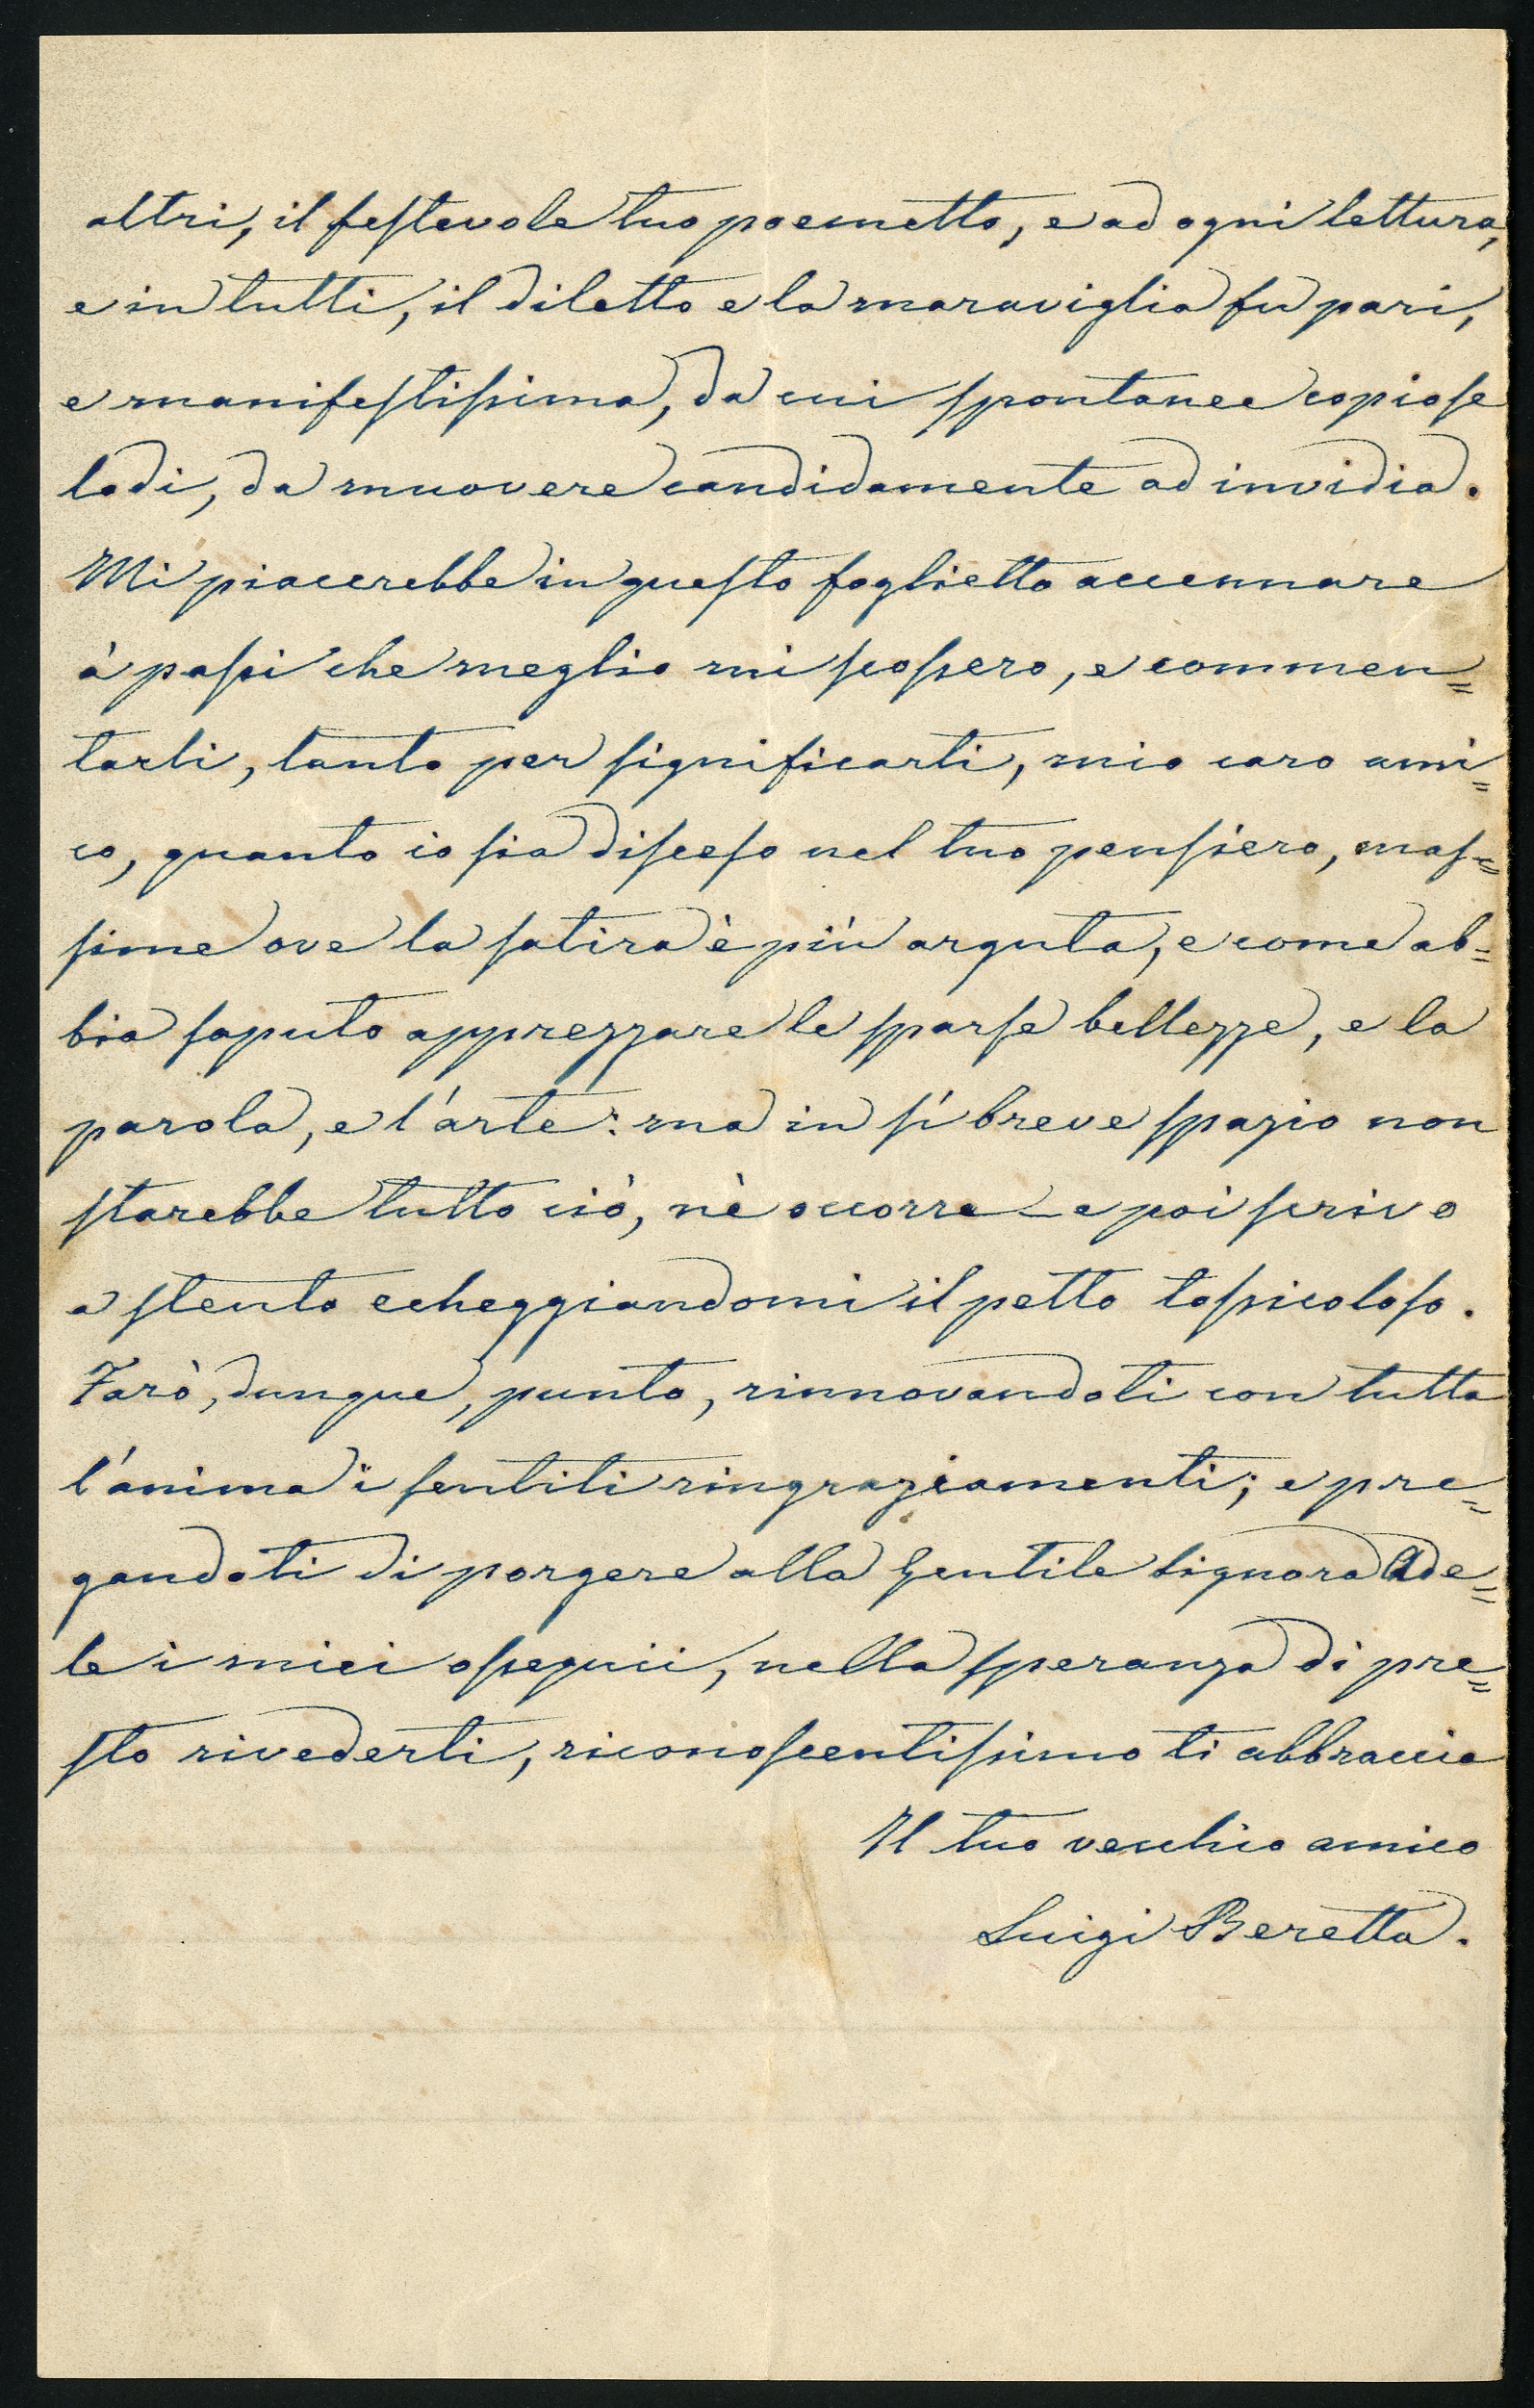 altri, il festevole tuo poemetto, e ad ogni lettura,
e in tutti, il diletto e la maraviglia fu pari,
e manifestissima, da cui spontanee copiose
lodi, da muovere candidamente ad invidia.
Mi piacerebbe in questo foglietto accennare
à passi che meglio mi scossero, e commen=
tarli, tanto per significarti, mio caro ami=
co, quanto io sia disceso nel tuo pensiero, mas=
sime ove la satira è più arguta, e come ab=
bia saputo apprezzare le sparse bellezze, e la
parola, e l'arte: ma in sì breve spazio non
starebbe tutto ciò, nè occorre – e poi scrivo
a stento echeggiandomi il petto tossicoloso.
Farò, dunque, punto, rinnovandoti con tutta
l'anima i sentiti ringraziamenti; e pre=
gandoti di porgere alla gentile signora Ade=
le i miei ossequii, nella speranza di pre=
sto rivederti, riconoscentissimo ti abbraccio
Il tuo vecchio amico
Luigi Beretta.